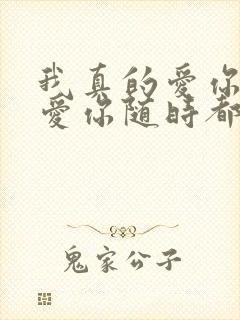 我真的愛你
愛你随時都
鬼家公子